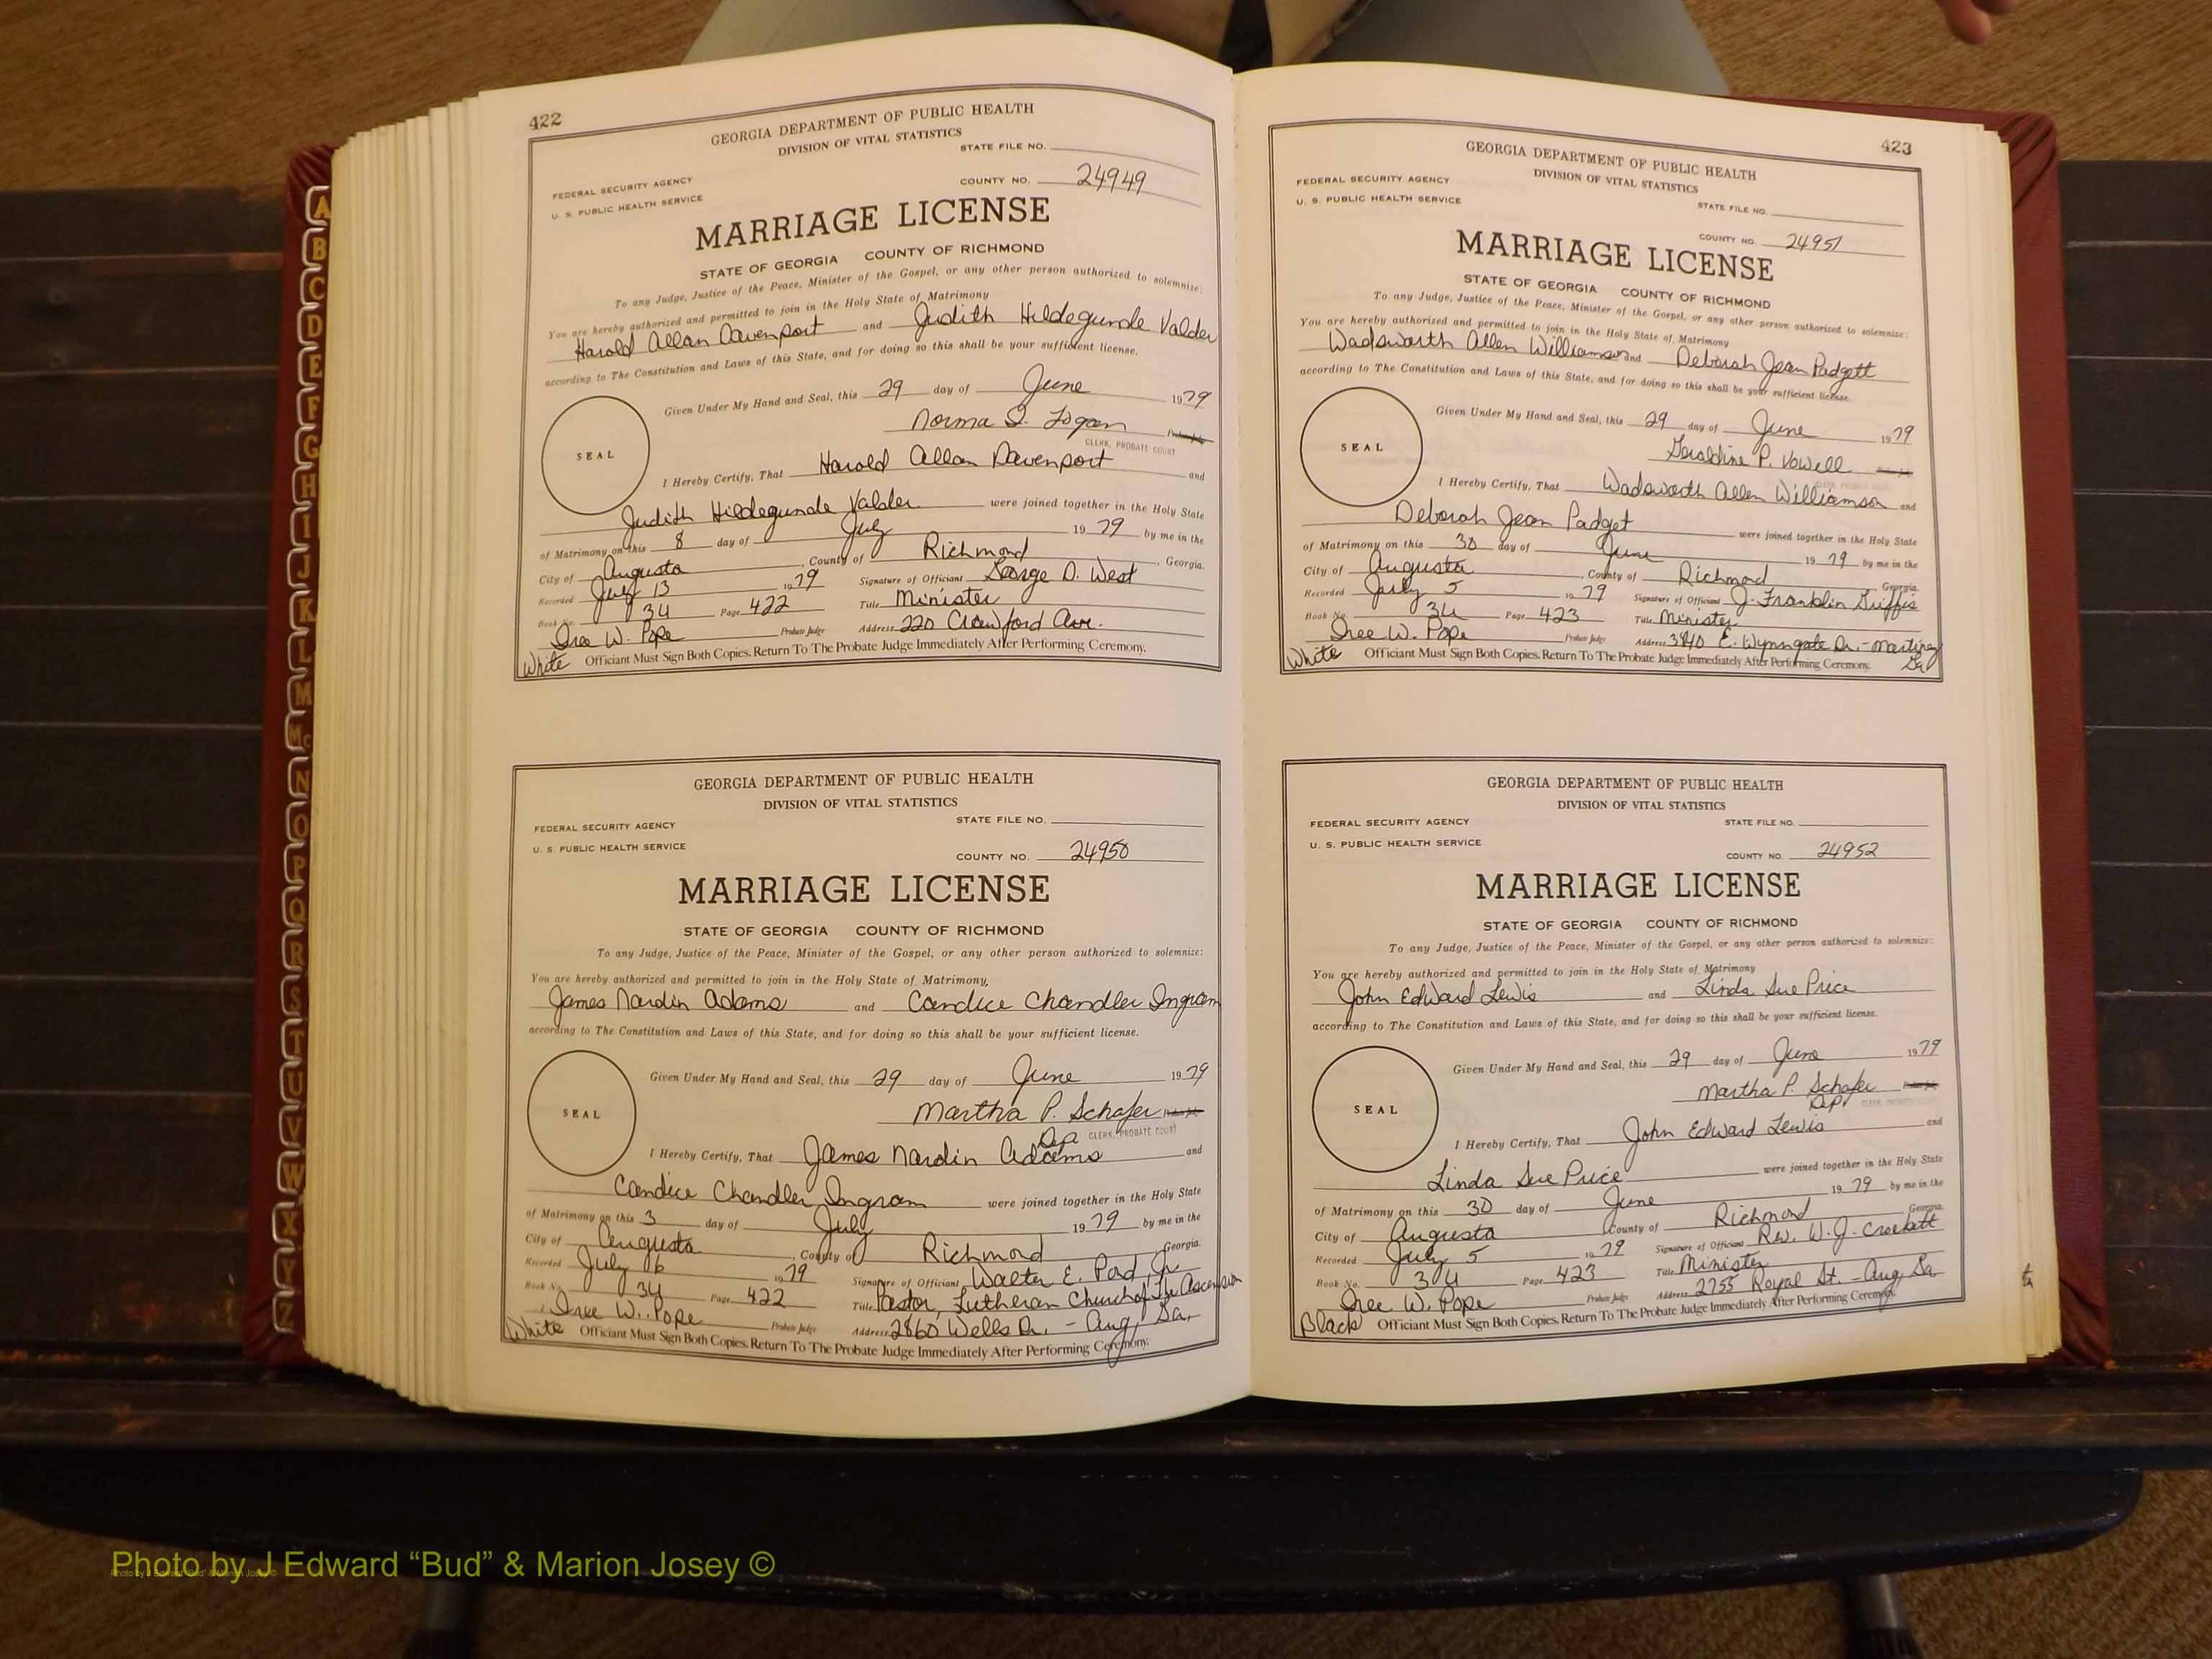 422
GEORGIA DEPARTMENT OF PUBLIC HEALTH
DIVISION OF VITAL STATISTICS
STATE FILE NO.
FEDERAL SECURITY AGENCY
COUNTY NO. 24949
U. S. PUBLIC HEALTH SERVICE
MARRIAGE LICENSE
STATE OF GEORGIA COUNTY OF RICHMOND
To any Judge, Justice of the Peace, Minister of the Gospel, or any other person authorized to solemnize:
You are hereby authorized and permitted to join in the Holy State of Matrimony
Harold Allan Davenport and Judith Hildegunde Valder
according to The Constitution and Laws of this State, and for doing so this shall be your sufficient license.
Given Under My Hand and Seal, this 29 day of June 1979
Norma S. Logan
CLERK, PROBATE COURT
SEAL
I Hereby Certify, That Harold Allan Davenport and
Judith Hildegunde Valder were joined together in the Holy State
of Matrimony on this 8 day of July 1979 by me in the
City of Augusta, County of Richmond, Georgia.
Recorded July 13 1979 Signature of Officiant George D. West
Book No. 34 Page 422 Title Minister
Iree W. Pope Probate Judge Address 220 Crawford Ave.
White Officiant Must Sign Both Copies. Return To The Probate Judge Immediately After Performing Ceremony.
GEORGIA DEPARTMENT OF PUBLIC HEALTH
DIVISION OF VITAL STATISTICS
STATE FILE NO.
FEDERAL SECURITY AGENCY
U. S. PUBLIC HEALTH SERVICE
COUNTY NO. 24950
MARRIAGE LICENSE
STATE OF GEORGIA COUNTY OF RICHMOND
To any Judge, Justice of the Peace, Minister of the Gospel, or any other person authorized to solemnize:
You are hereby authorized and permitted to join in the Holy State of Matrimony,
James Nardin Adams and Candice Chandler Ingram
according to The Constitution and Laws of this State, and for doing so this shall be your sufficient license.
Given Under My Hand and Seal, this 29 day of June 1979
Martha P. Schafer
Dep. CLERK, PROBATE COURT
SEAL
I Hereby Certify, That James Nardin Adams and
Candice Chandler Ingram were joined together in the Holy State
of Matrimony on this 3 day of July 1979 by me in the
City of Augusta, County of Richmond Georgia.
Recorded July 6 1979 Signature of Officiant Walter E. Jr.
Book No. 34 Page 422 Title Pastor, Lutheran Church of The Ascension
Iree W. Pope Probate Judge Address 2860 Wells Dr. - Aug, Ga.
White Officiant Must Sign Both Copies. Return To The Probate Judge Immediately After Performing Ceremony.
423
GEORGIA DEPARTMENT OF PUBLIC HEALTH
DIVISION OF VITAL STATISTICS
FEDERAL SECURITY AGENCY
U. S. PUBLIC HEALTH SERVICE
STATE FILE NO.
COUNTY NO. 24951
MARRIAGE LICENSE
STATE OF GEORGIA COUNTY OF RICHMOND
To any Judge, Justice of the Peace, Minister of the Gospel, or any other person authorized to solemnize:
You are hereby authorized and permitted to join in the Holy State of Matrimony
Wadsworth Allen Williamson and Deborah Jean Padgett
according to The Constitution and Laws of this State, and for doing so this shall be your sufficient license.
Given Under My Hand and Seal, this 29 day of June 1979
Geraldine P. Vowell
CLERK, PROBATE COURT
SEAL
I Hereby Certify, That Wadsworth Allen Williamson and
Deborah Jean Padget were joined together in the Holy State
of Matrimony on this 30 day of June 1979 by me in the
City of Augusta, County of Richmond, Georgia.
Recorded July 5 1979 Signature of Officiant J. Franklin Griffis
Book No. 34 Page 423 Title Minister
Iree W. Pope Probate Judge Address 3840 E. Wynngate Dr. - Martinez
Ga
White Officiant Must Sign Both Copies. Return To The Probate Judge Immediately After Performing Ceremony.
GEORGIA DEPARTMENT OF PUBLIC HEALTH
DIVISION OF VITAL STATISTICS
FEDERAL SECURITY AGENCY
STATE FILE NO.
U. S. PUBLIC HEALTH SERVICE
COUNTY NO. 24952
MARRIAGE LICENSE
STATE OF GEORGIA COUNTY OF RICHMOND
To any Judge, Justice of the Peace, Minister of the Gospel, or any other person authorized to solemnize:
You are hereby authorized and permitted to join in the Holy State of Matrimony
John Edward Lewis and Linda Sue Price
according to The Constitution and Laws of this State, and for doing so this shall be your sufficient license.
Given Under My Hand and Seal, this 29 day of June 1979
Martha P. Schafer
Dep. CLERK, PROBATE COURT
SEAL
I Hereby Certify, That John Edward Lewis and
Linda Sue Price were joined together in the Holy State
of Matrimony on this 30 day of June 1979 by me in the
City of Augusta County of Richmond Georgia.
Recorded July 5 1979 Signature of Officiant Rev. W. J. Crockett
Book No. 34 Page 423 Title Minister
Iree W. Pope Probate Judge Address 2755 Royal St. - Aug, Ga.
Black Officiant Must Sign Both Copies. Return To The Probate Judge Immediately After Performing Ceremony.
A
B
C
D
E
F
G
H
I
J
K
L
M
Mc
N
O
P
Q
R
S
T
U
V
W
X
Y
Z
Photo by J Edward “Bud” & Marion Josey ©